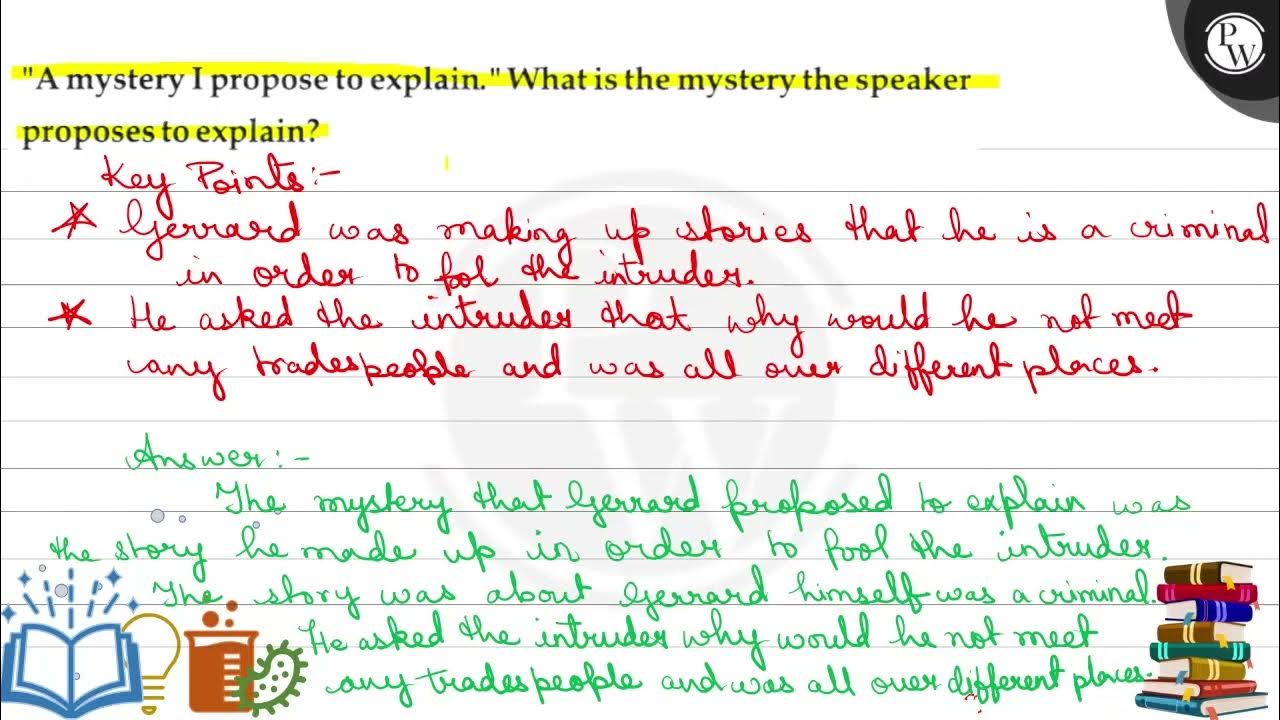 P
W
"A mystery I propose to explain." What is the mystery the speaker
proposes to explain?
Key Points:-
Gerrard was making up stories that he is a criminal
in order to fool the intruder.
He asked the intruder that why would he not meet
any tradespeople and was all over different places.
Answer:-
The mystery that Gerrard proposed to explain was
the story he made up in order to fool the intruder.
The story was about Gerrard himself was a criminal.
He asked the intruder why would he not meet
any tradespeople and was all over different places.